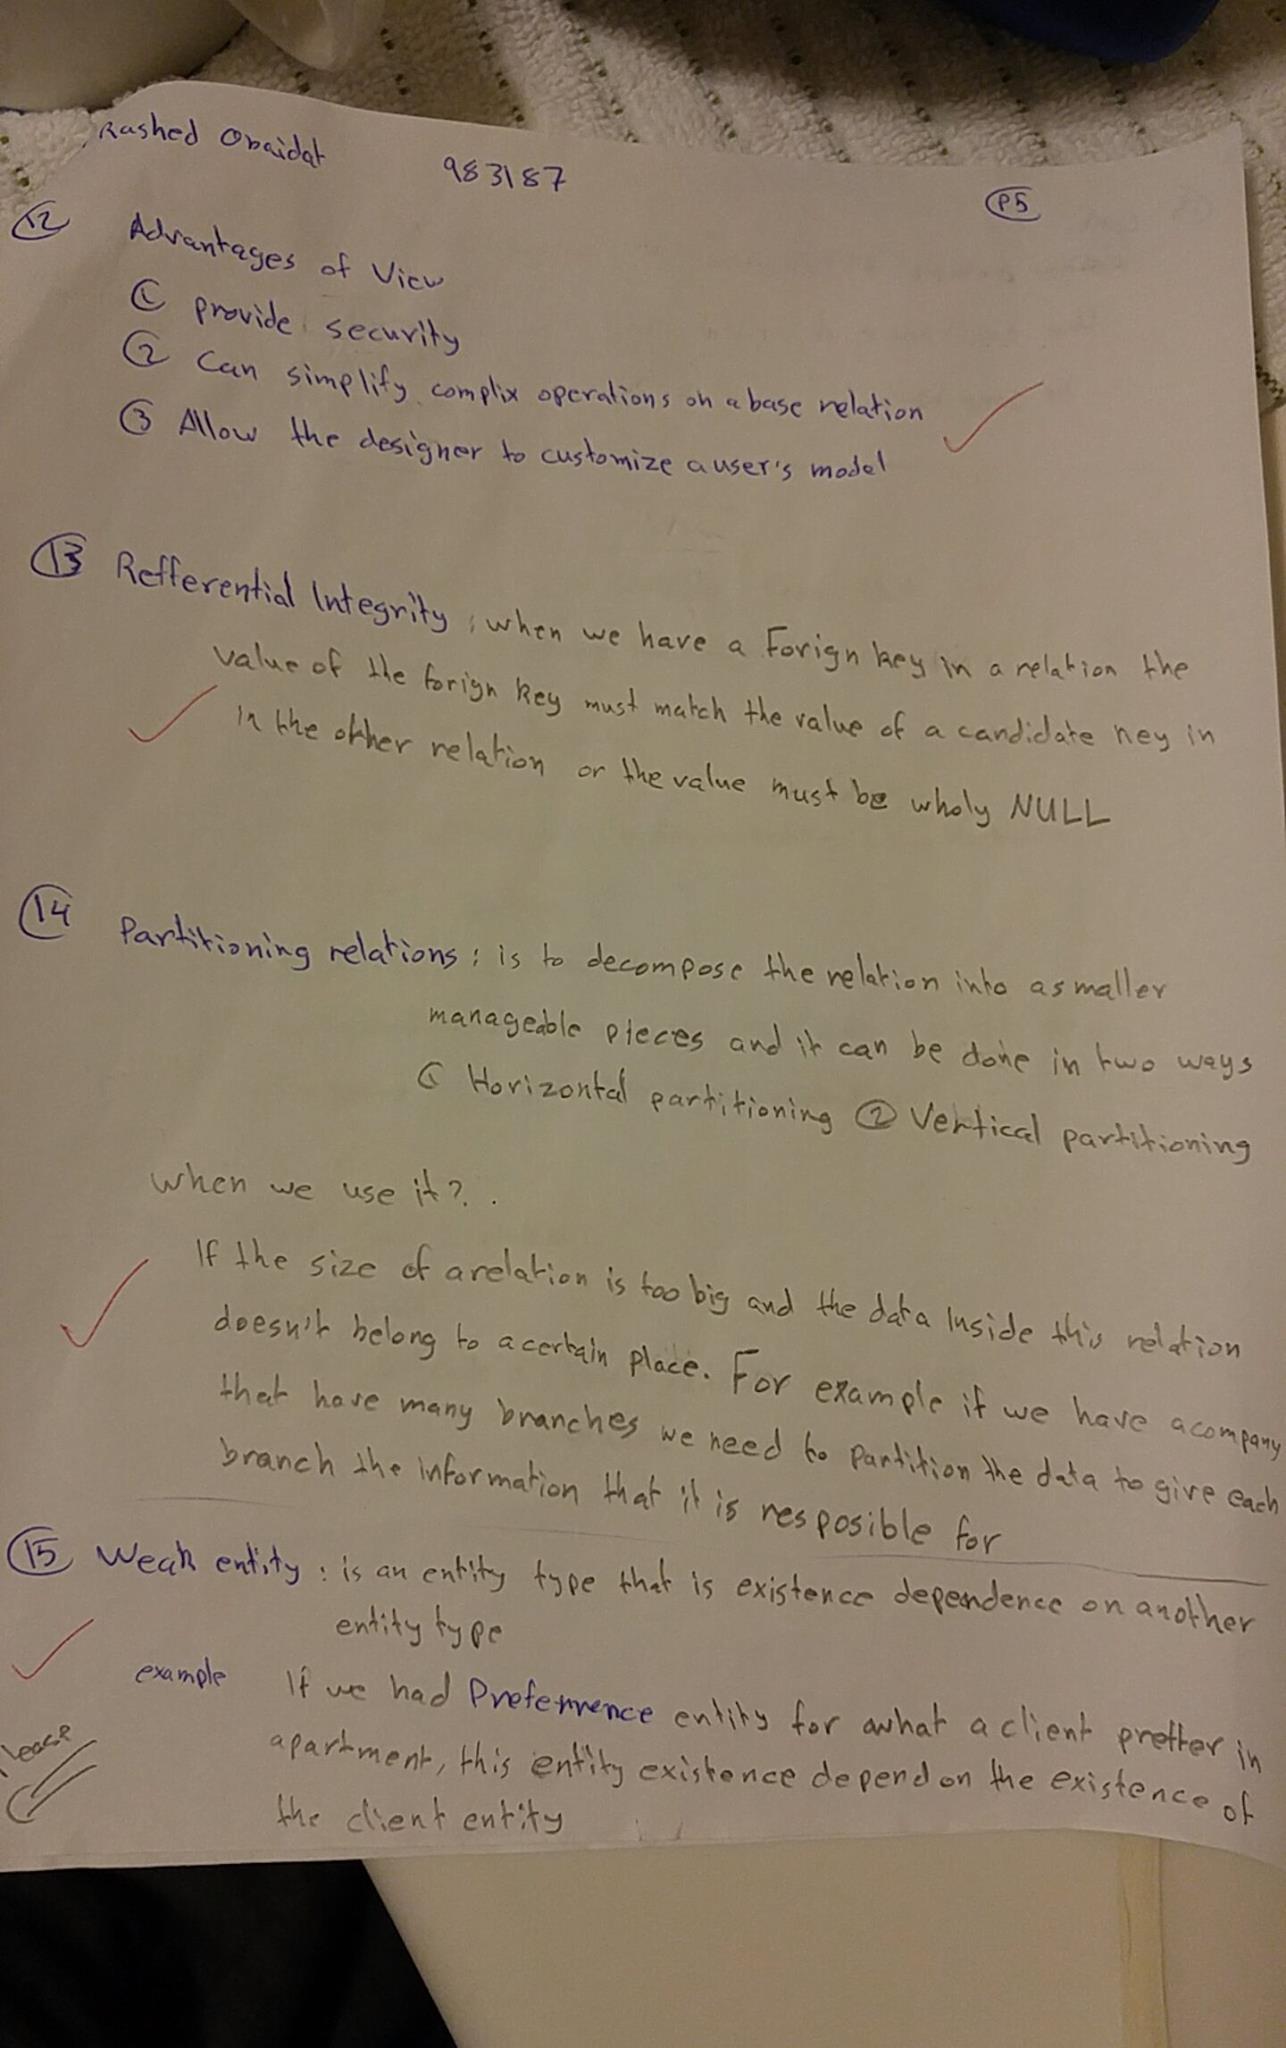 Rashed Obaidat 983187 P5
12 Advantages of View
1 provide security
2 Can simplify complix operations on a base relation
3 Allow the designer to customize a user's model
13 Refferential Integrity : when we have a Forign key in a relation the
value of the forign key must match the value of a candidate key in
in the other relation or the value must be wholy NULL
14 Partitioning relations : is to decompose the relation into a smaller
manageable pieces and it can be done in two ways
1 Horizontal partitioning 2 Vertical partitioning
when we use it? .
If the size of a relation is too big and the data Inside this relation
doesn't belong to a certain place. For example if we have a company
that have many branches we need to partition the data to give each
branch the information that it is resposible for
15 Weak entity : is an entity type that is existence dependence on another
entity type
example If we had Preferrence entity for what a client preffer in
apartment, this entity existence depend on the existence of
the client entity